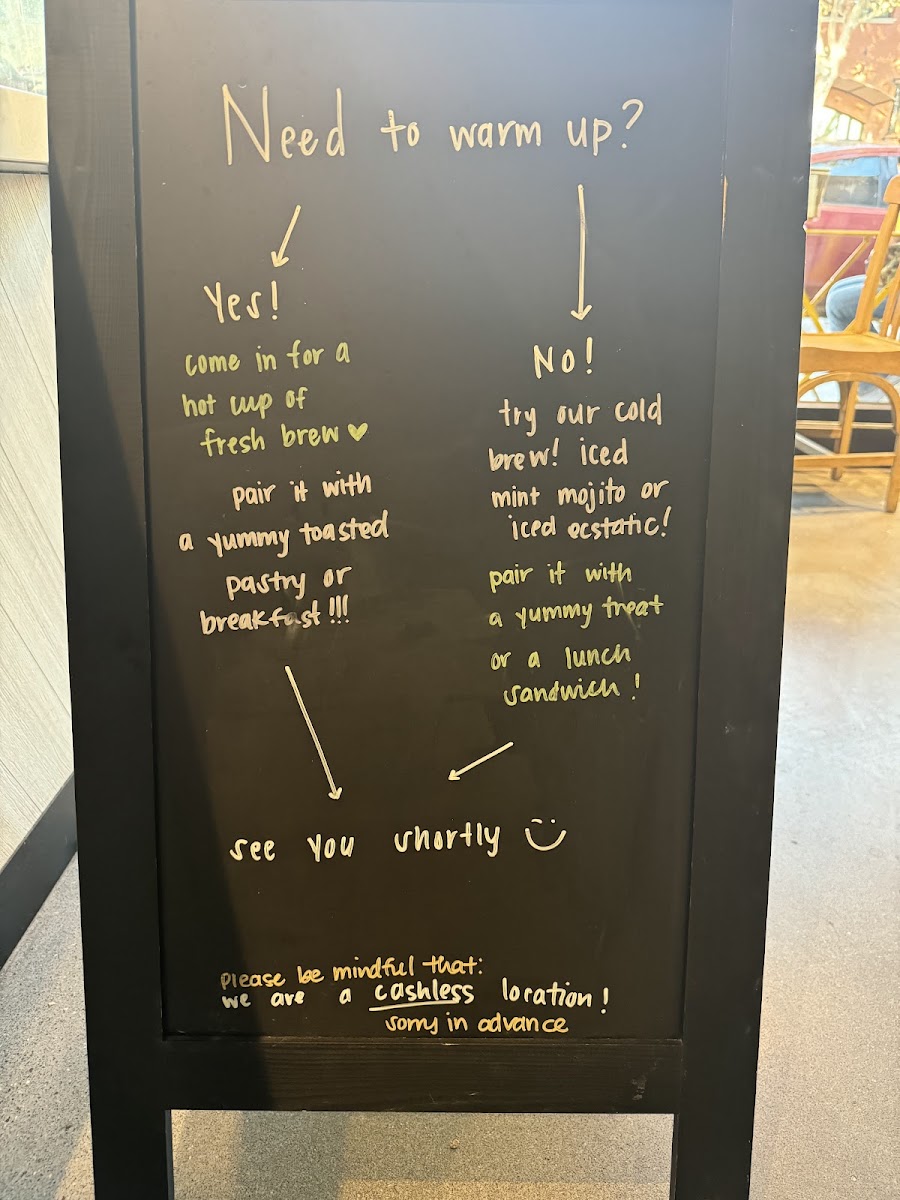 Need to warm up?
Yes!
come in for a
hot cup of
fresh brew ♥
pair it with
a yummy toasted
pastry or
breakfast!!!
No!
try our cold
brew! iced
mint mojito or
iced ecstatic!
pair it with
a yummy treat
or a lunch
sandwich!
see you shortly
please be mindful that:
we are a cashless location!
sorry in advance